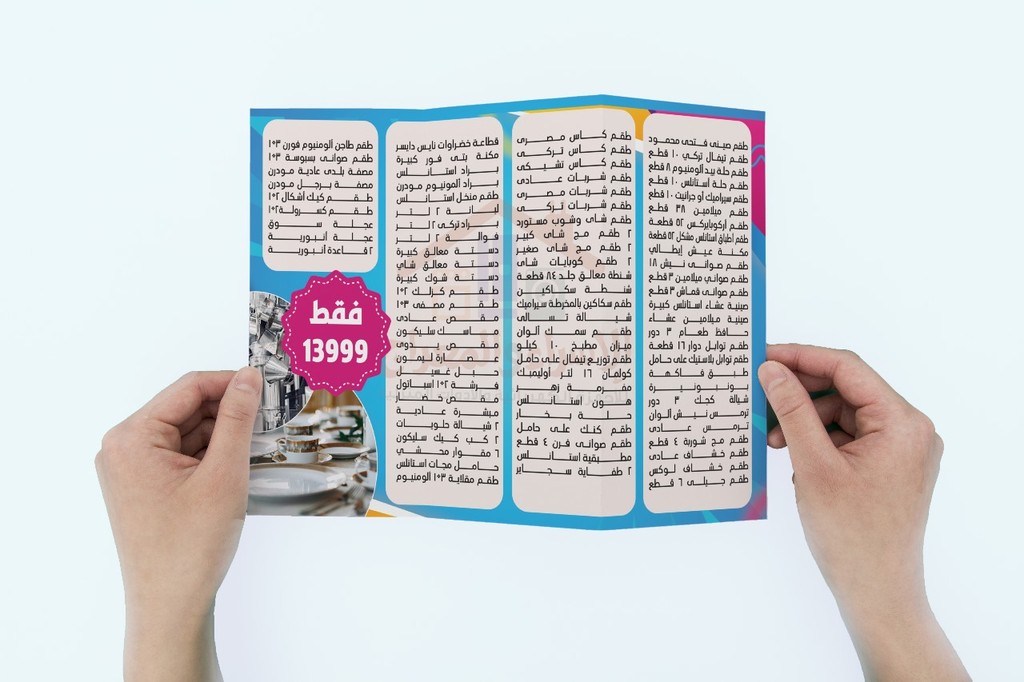 طقم صينى فتحى محمود
طقم تيفال تركي ١٠ قطع
طقم حلة بيد ألومنيوم ٨ قطع
طقم حلة أستانلس ١٠ قطع
طقم سيراميك أو جرانيت ١٠ قطع
طقم ميلامين ٣٨ قطع
طقم أركوبايركس ٥٢ قطعة
طقم أطباق استانلس مشكل ٥٢ قطعة
مكنة عيش إيطالي
طقم صوانى نيش ١٨
طقم صواني ميلامين ٣ قطع
طقم صوانى قماش ٣ قطع
صينية عشاء استانلس كبيرة
صينية ميلامين عشاء
حافظ طعام ٣ دور
طقم توابل دوار ١٦ قطعة
طقم توابل بلاستيك على حامل
طبق فاكهة
بونبونيرة
شيالة كحك ٣ دور
ترمس نيش ألوان
ترمس عادى
طقم مج شوربة ٤ قطع
طقم خشاف عادى
طقم خشاف لوكس
طقم جيلى ٦ قطع
طقم كاس مصرى
طقم كاس تركى
طقم كاس تشيكى
طقم شربات عادى
طقم شربات مصرى
طقم شربات تركى
طقم شاى وشوب مستورد
٢ طقم مج شاى كبير
٢ طقم مج شاى صغير
٢ طقم كوبايات شاى
شنطة معالق جلد ٨٤ قطعة
شنطة سكاكين
طقم سكاكين بالمخرطة سيراميك
شيالة تسالى
طقم سمك ألوان
ميزان مطبخ ١٠ كيلو
طقم توزيع تيفال على حامل
كولمان ١٦ لتر أوليمبك
مفرمة زهير
هون استانلس
حلة بخار
طقم كنك على حامل
طقم صوانى فرن ٤ قطع
مطبقية استانلس
٢ طفاية سجاير
قطاعة خضراوات نايس دايسر
مكنة بتى فور كبيرة
براد استانلس
براد ألمونيوم مودرن
طقم منخل استانلس
لبانة ٢ لتر
براد تركى ٢ لتر
فوالة ٢ لتر
دستة معالق كبيرة
دستة معالق شاي
دستة شوك كبيرة
طقم كزلك ٢*١
طقم مصفى ٣*١
مقص عادى
ماسك سليكون
مقص يدوى
عصارة ليمون
حبل غسيل
فرشة ٢*١ اسباتول
مقص بصلة
مبشرة عادية
٢ شيالة حلويات
٢ كب كيك سليكون
٦ مقوار محشي
حامل مجات استانلس
طقم مقلاية ٣*١ ألومنيوم
طقم طاجن ألومنيوم فورن ٣*١
طقم صوانى بسبوسة ٣*١
مصفة بلدى عادية مودرن
مصفة برجل مودرن
طقم كيك أشكال ٢*١
طقم كسرولة ٢*١
عجلة سوق
عجلة أنبوربة
٢ قاعدة أنبوربة
فقط
13999